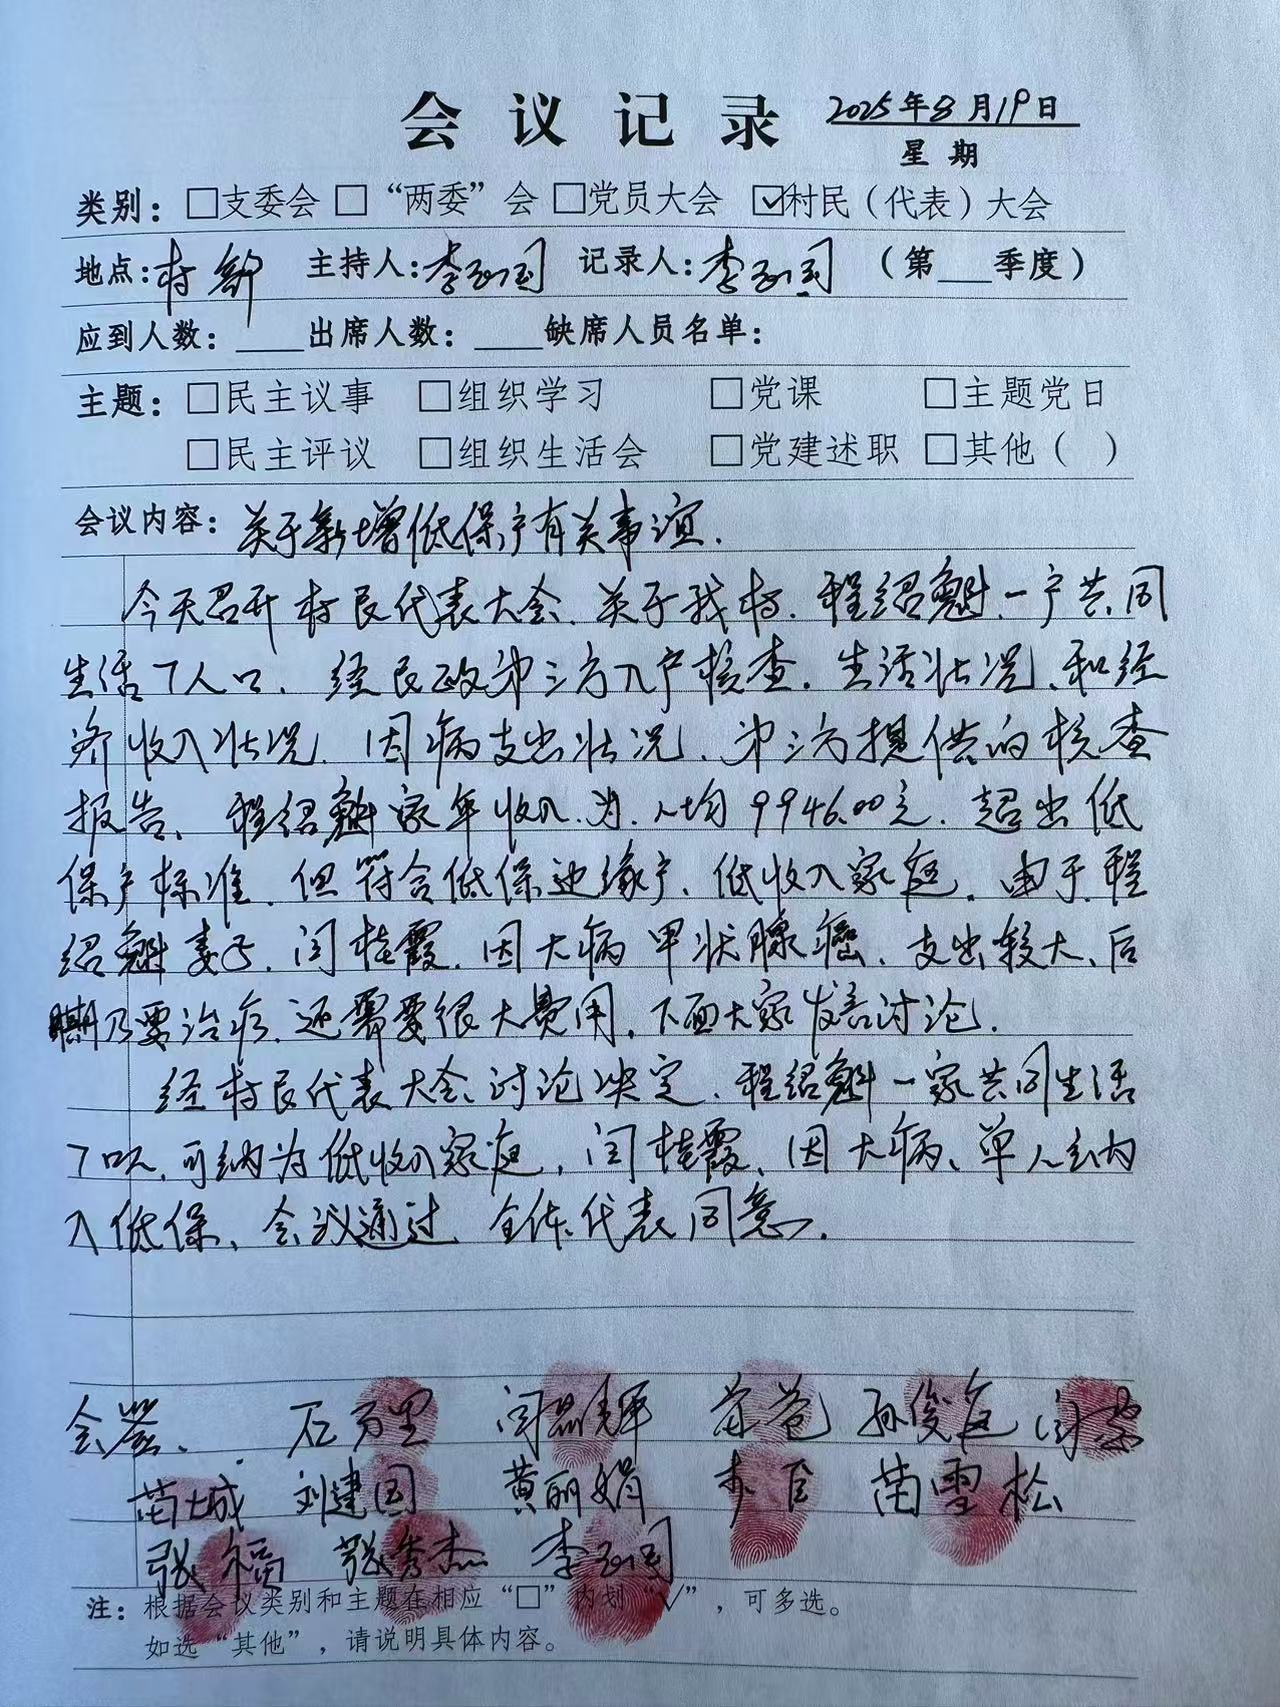 会议记录 2025年8月19日
星期
类别：□支委会 □“两委”会 □党员大会 ☑村民（代表）大会
地点：村部 主持人：李国 记录人：李国 （第___季度）
应到人数：___出席人数：___缺席人员名单：
主题：□民主议事 □组织学习 □党课 □主题党日
□民主评议 □组织生活会 □党建述职 □其他（ ）
会议内容：关于新增低保户有关事谊.
今天召开村民代表大会、关于我村.程绍魁一户共同
生活7人口、经民政第三方入户核查.生活状况、和经
济收入状况.因病支出状况、第三方提供的核查
报告、程绍魁家年收入为.人均9946.00元.超出低
保户标准.但符合低保边缘户、低收入家庭.由于程
绍魁妻子.闫桂霞.因大病甲状腺癌、支出较大、后
期乃要治疗.还需要很大费用.下面大家发言讨论.
经村民代表大会讨论决定.程绍魁一家共同生活
7口人.可纳为低收入家庭.闫桂霞、因大病、单人纳
入低保、会议通过.全体代表同意.
会签、石万里 闫磊辉 孙俊庭 闫
苗城 刘建国 黄丽娟 苗雪松
张福 张秀杰 李国
注：根据会议类别和主题在相应“□”内划“√”，可多选。
如选“其他”，请说明具体内容。